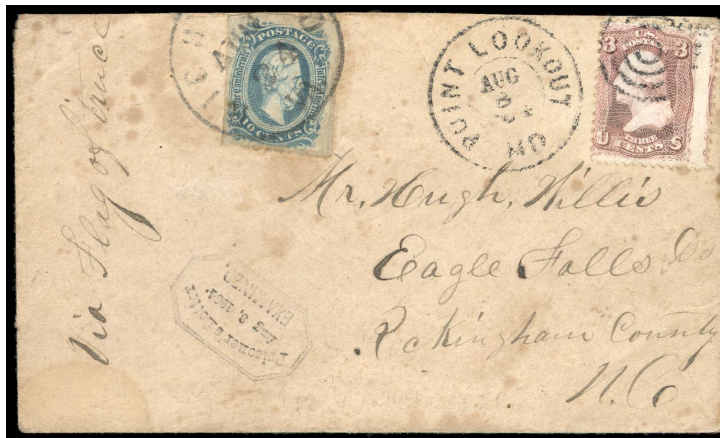 POSTAGE
10 CENTS
POINT LOOKOUT MD
AUG
3
U.S.
POSTAGE
3 3
U S
THREE
CENTS
Via Flag of Truce
Mr. Hugh, Willis
Eagle Falls
Rockingham County
N.C
Prisoner's Letter
AUG 3, 1864
EXAMINED